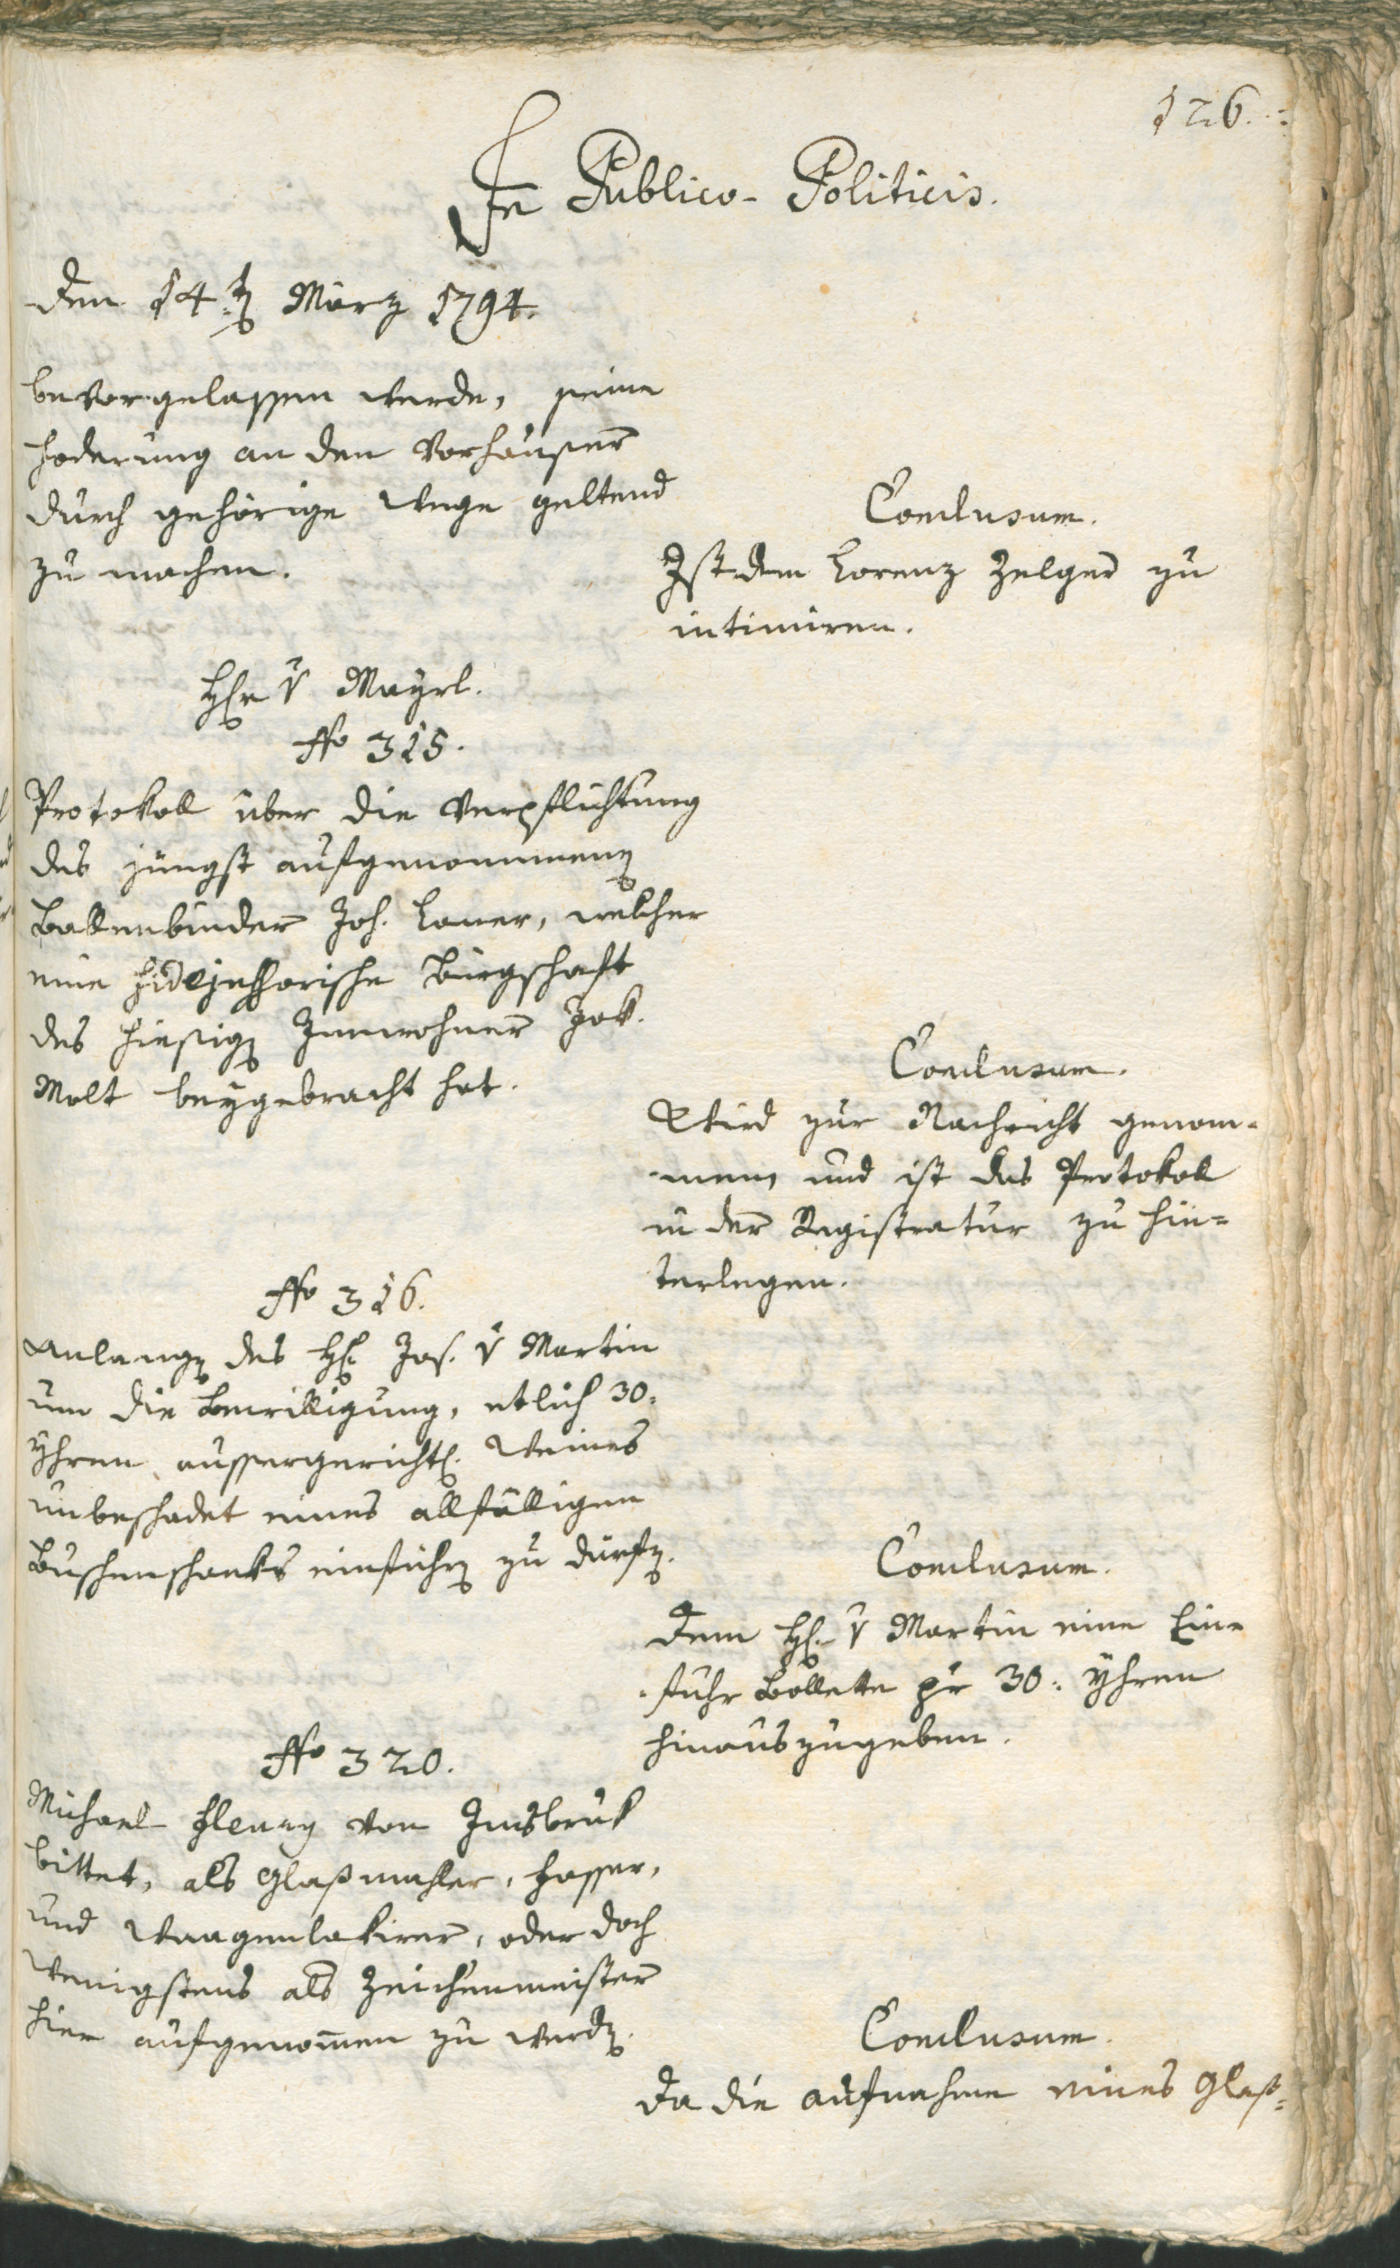 126.
In Publico-Politicis.
Den 14ten März 1794.
bevorgelassen werde, seine
Foderung an den Vorhauser
durch gehörige Wege geltend
zu machen.
Conclusum.
Ist dem Lorenz Zelger zu
intimiren.
Hr v Mayrl.
No 315.
Protokoll über die Verpflichtung
des jüngst aufgenommenen
Ballenbinder Joh. Laner, welcher
eine Fidejussorische Bürgschaft
des hiesigen Innwohner Jak.
Molt beygebracht hat.
Conclusum.
Wird zur Nachricht genom-
men, und ist das Protokoll
in der Registratur zu hin-
terlegen.
No 316.
Anlangen des H. Jos. v Martin
um die Bewilligung, etlich 30:
Yhren aussergerichtl. Weines
unbeschadet eines allfälligen
Buschenschanks einführen zu dürfen.
Conclusum.
Dem H. v Martin eine Ein-
fuhr Bollette pr 30: Yhren
hinauszugeben.
No 320.
Michael von Insbruk
bittet, als Glaßmahler, Fasser,
und Waagenlakirer, oder doch
wenigstens als Zeichenmeister
hier aufgenommen zu werden.
Conclusum.
Da die Aufnahme eines Glaß-